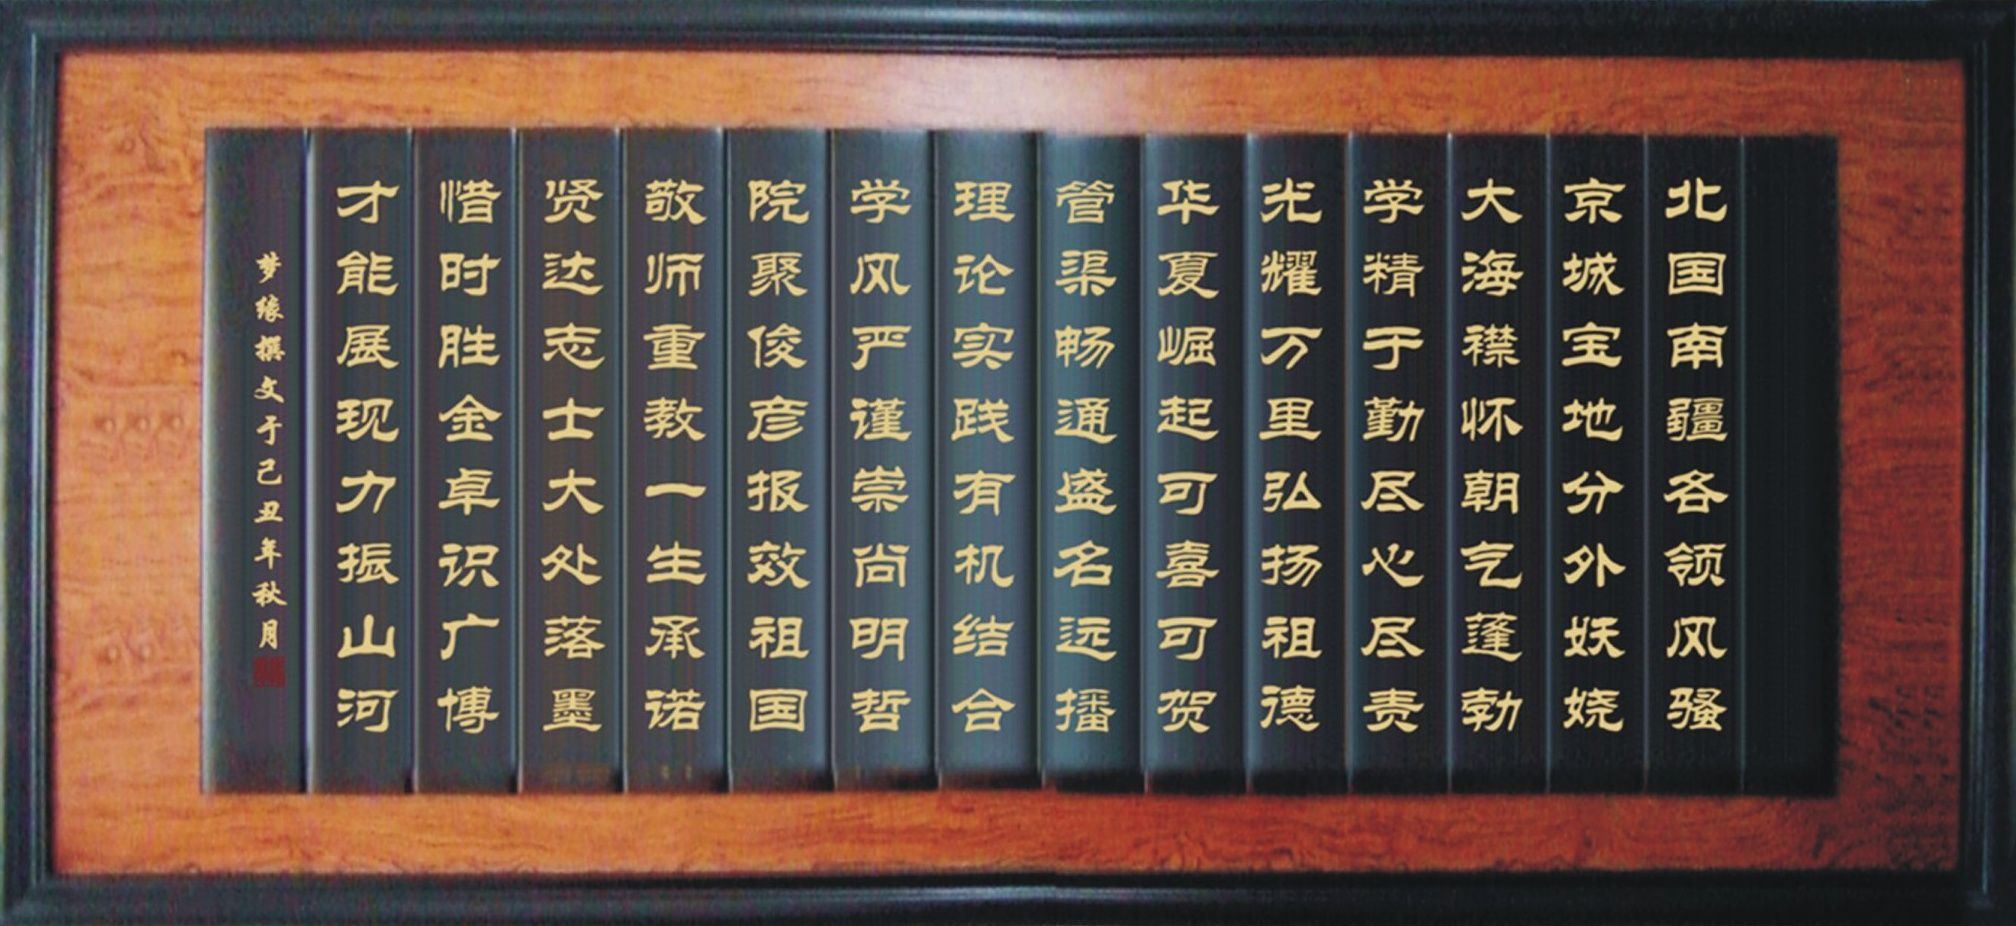 北国南疆各领风骚
京城宝地分外妖娆
大海襟怀朝气蓬勃
学精于勤尽心尽责
光耀万里弘扬祖德
华夏崛起可喜可贺
管渠畅通盛名远播
理论实践有机结合
学风严谨崇尚明哲
院聚俊彦报效祖国
敬师重教一生承诺
贤达志士大处落墨
惜时胜金卓识广博
才能展现力振山河
梦缘撰文于己丑年秋月